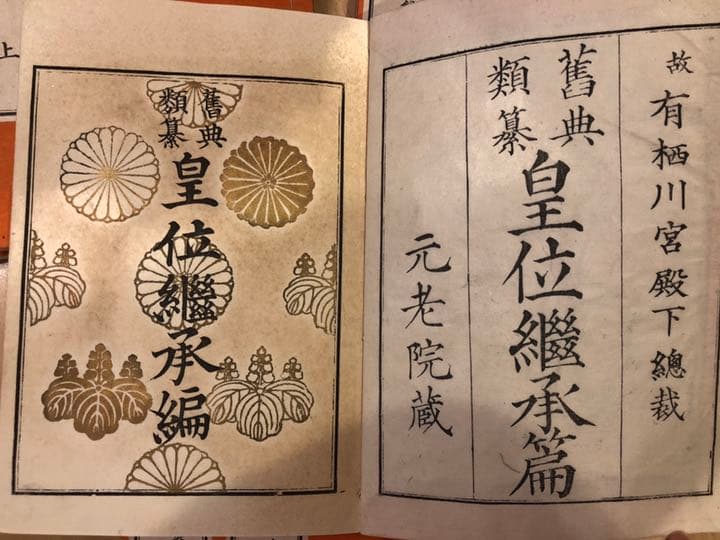 故 有栖川宮殿下總裁
舊典
類纂
皇位繼承篇
元老院蔵
舊典
類纂
皇位繼承編
上